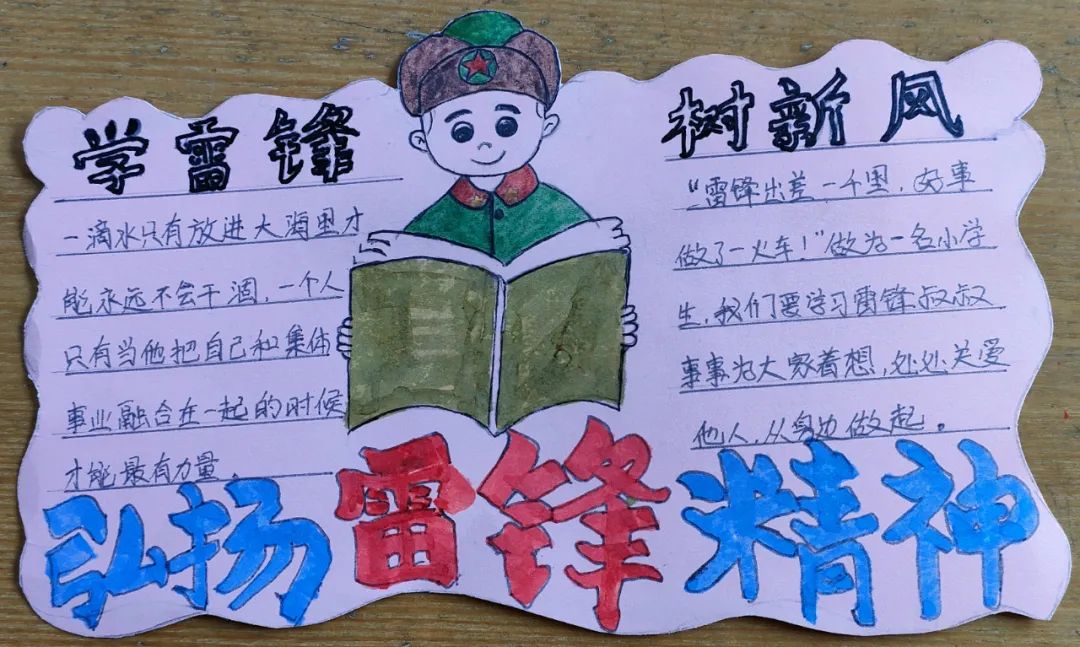 学雷锋
一滴水只有放进大海里才
能永远不会干涸，一个人
只有当他把自己和集体
事业融合在一起的时候
才能最有力量。
树新风
“雷锋出差一千里，好事
做了一火车！”做为一名小学
生，我们要学习雷锋叔叔
事事为大家着想，处处关爱
他人，从身边做起。
弘扬雷锋精神